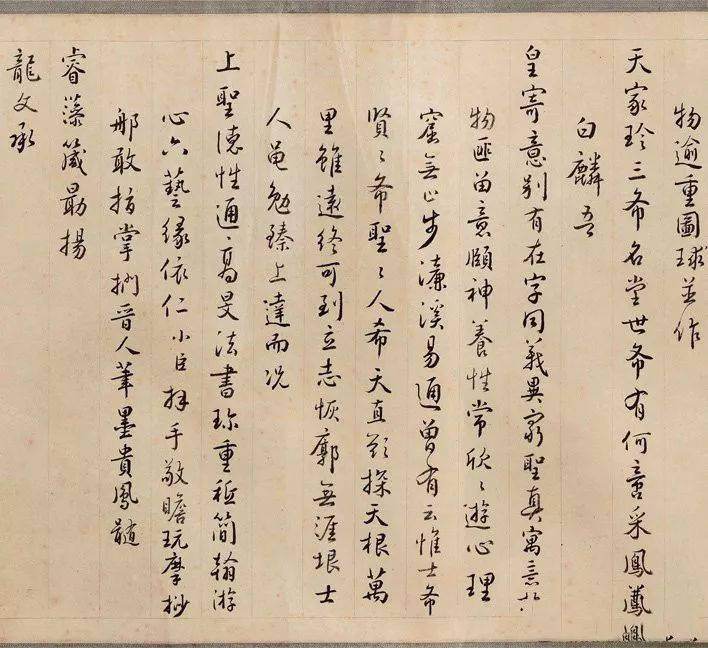 物逾重圖球並作
天家珍三希名堂世希有何啻采鳳薦
白麟吾
皇寄意別有在字同義異窮聖真寓意於
物匪留意頤神養性常欣〻遊心理
窟無止步濂溪易通曾有云惟士希
賢〻希聖〻人希天直欲探天根萬
里雖遠終可到立志恢廓無涯垠士
人黽勉臻上達而況
上聖德性通高旻法書珍重秪簡翰游
心六藝緣依仁小臣拜手敬瞻玩摩挲
那敢指掌捫晉人筆墨貴鳳髓
睿藻箴勗揚
龍文承